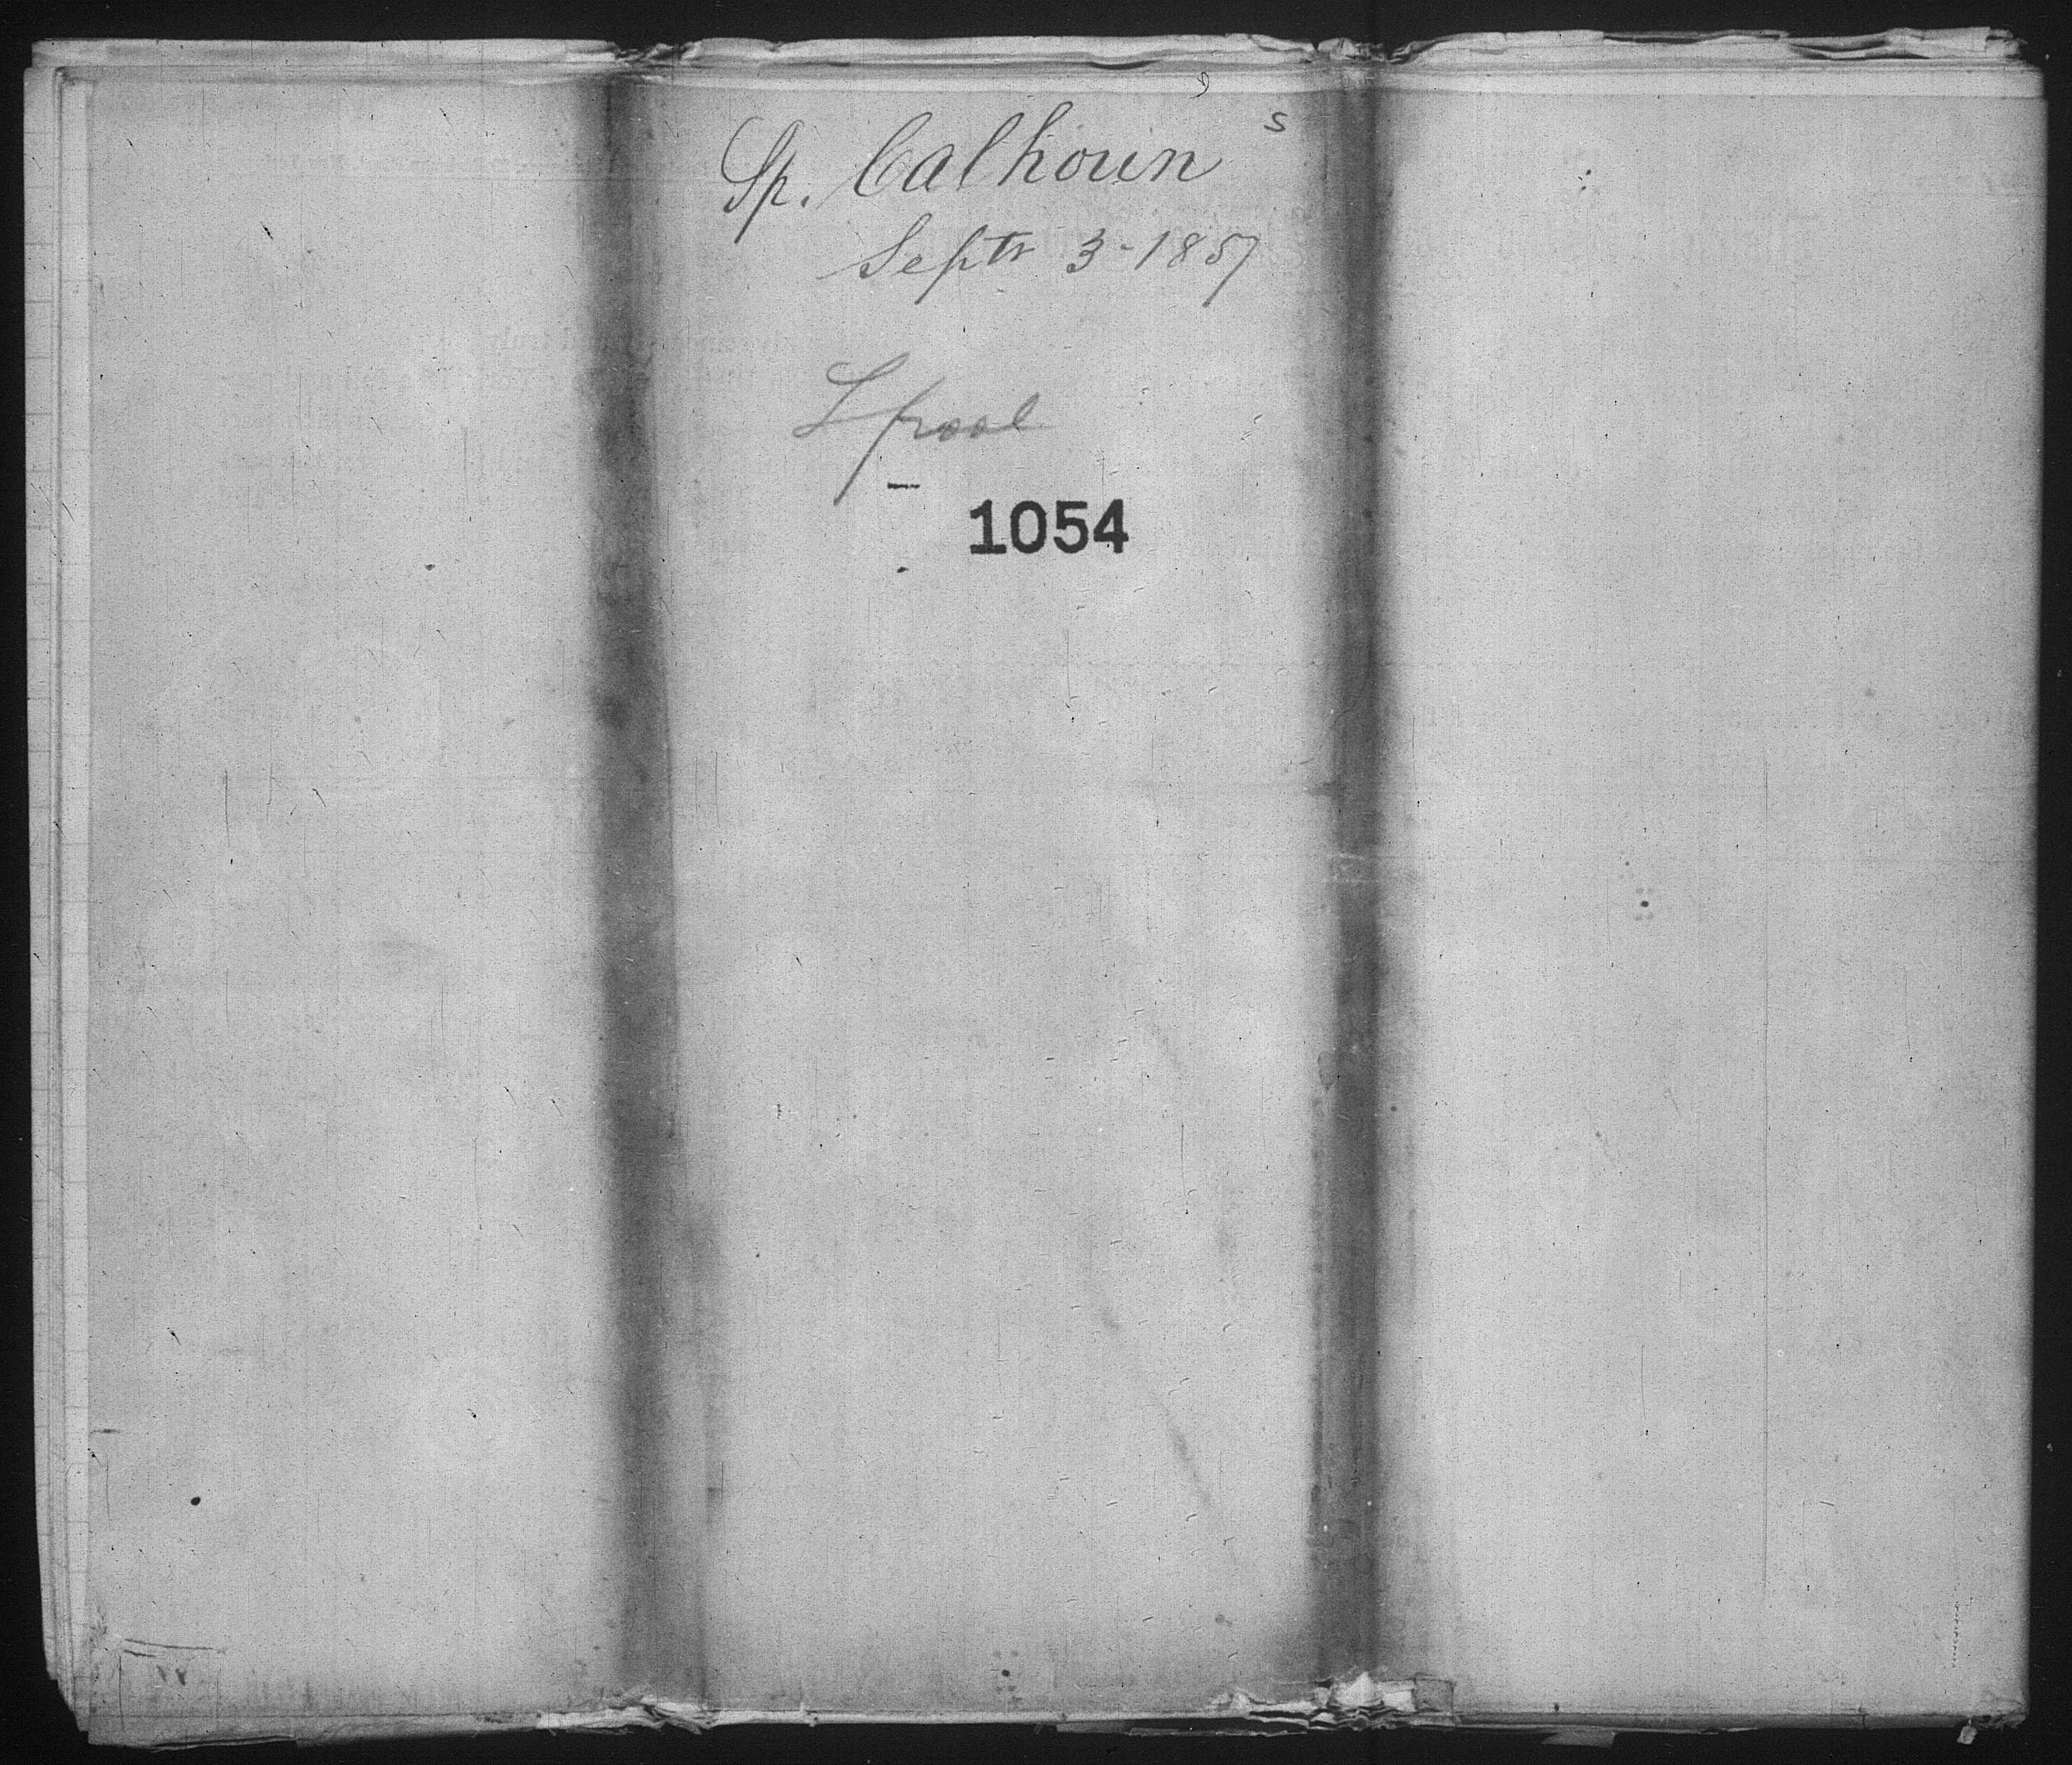 s
Sp. Calhoun
Septr 3-1857
Lpool
1054